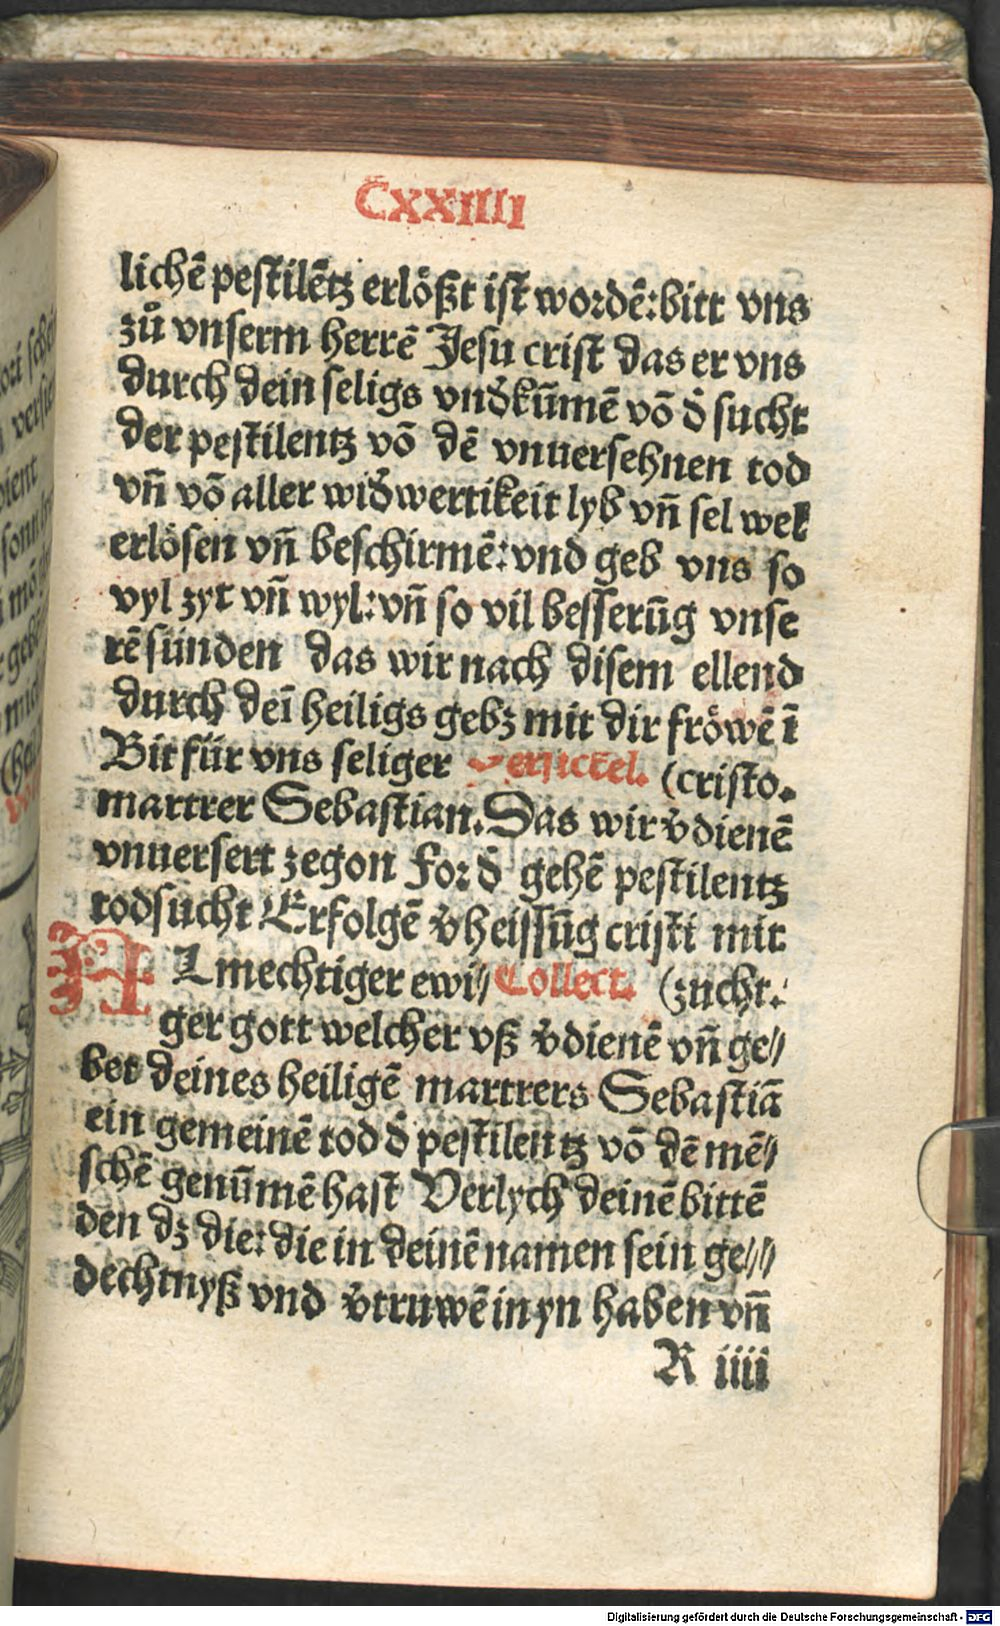 CXXIIII
lichē pestilētz erlößt ist wordē: bitt vns
zů vnserm herrē Jesu crist das er vns
durch dein seligs vnd̓kūmē vō d̓ sucht
der pestilentz vō dē vnuersehnen tod
vn̄ vō aller wid̓wertikeit lyb vn̄ sel wel
erlösen vn̄ beschirmē: vnd geb vns so
vyl zyt vn̄ wyl: vn̄ so vil besserūg vnse
rē sünden das wir nach disem ellend
durch deī heiligs gebz mit dir fröwē ī
Bit für vns seliger versickel. (cristo.
martrer Sebastian. Das wir v̓dienē
vnuersert zegon For d̓ gehē pestilentz
todsucht Erfolgē v̓heissūg cristi mit
ALmechtiger ewi// Collect. (zucht.
ger gott welcher vß v̓dienē vn̄ ge//
bet deines heiligē martrers Sebastiā
ein gemeinē tod d̓ pestilentz vō dē mē//
schē genūmē hast Verlych deinē bittē
den dz die: die in deinē namen sein ge//
dechtnyß vnd v̓truwē in yn haben vn̄
R iiii
Digitalisierung gefördert durch die Deutsche Forschungsgemeinschaft - DFG